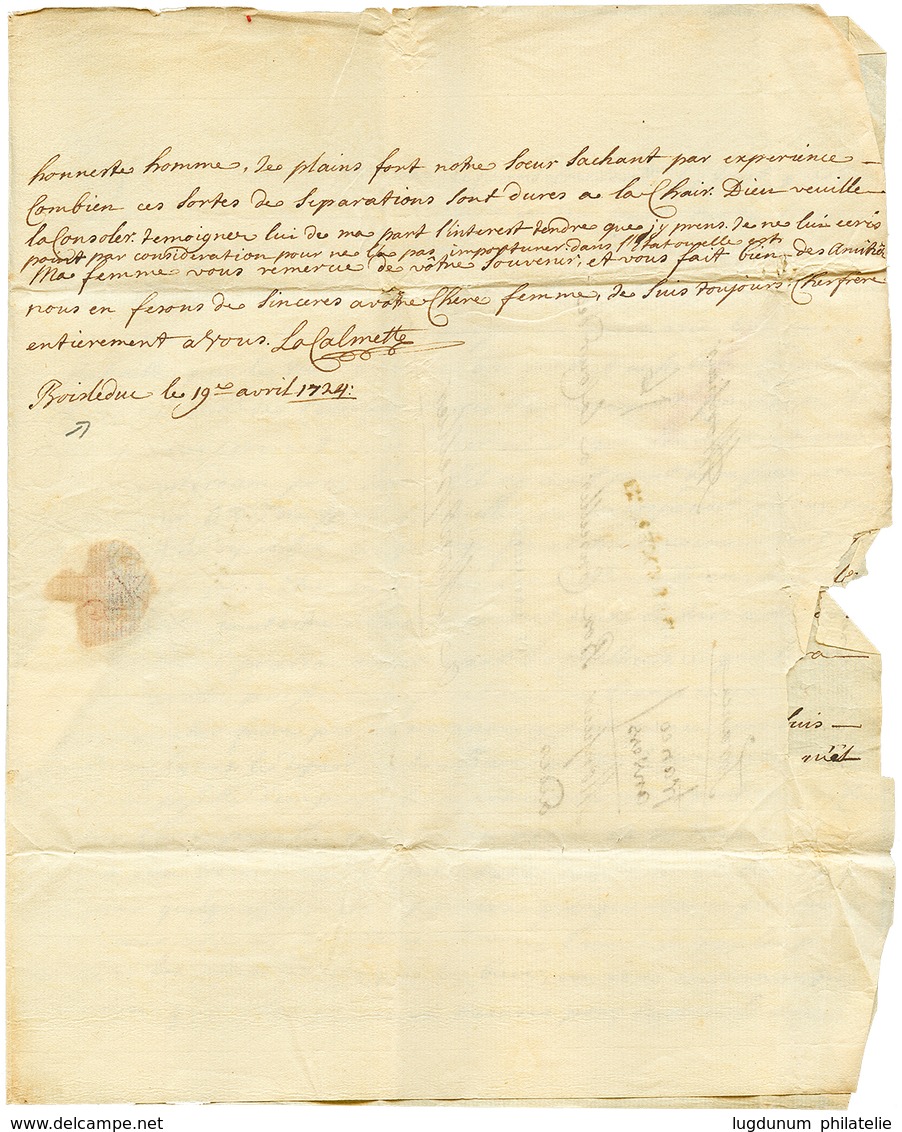 honneste homme, Je plains fort notre soeur sachant par experience —
Combien ces sortes de separations sont dures a la Chair. Dieu veuille
la Consoler. temoigner lui de ma part l'interest tendre que j'y prens. Je ne lui ecris
point par consideration pour ne la pas importuner dans l'etat ou elle est
Ma femme vous remercie de vôtre souvenir, et vous fait bien des Amitiés
nous en fesons de sinceres a vôtre Chere femme, Je suis toujours Cher frere
entierement a Vous. La Calmette
Boisleduc le 19me avril 1724:
suis —
delcampe.net
lugdunum philatelie